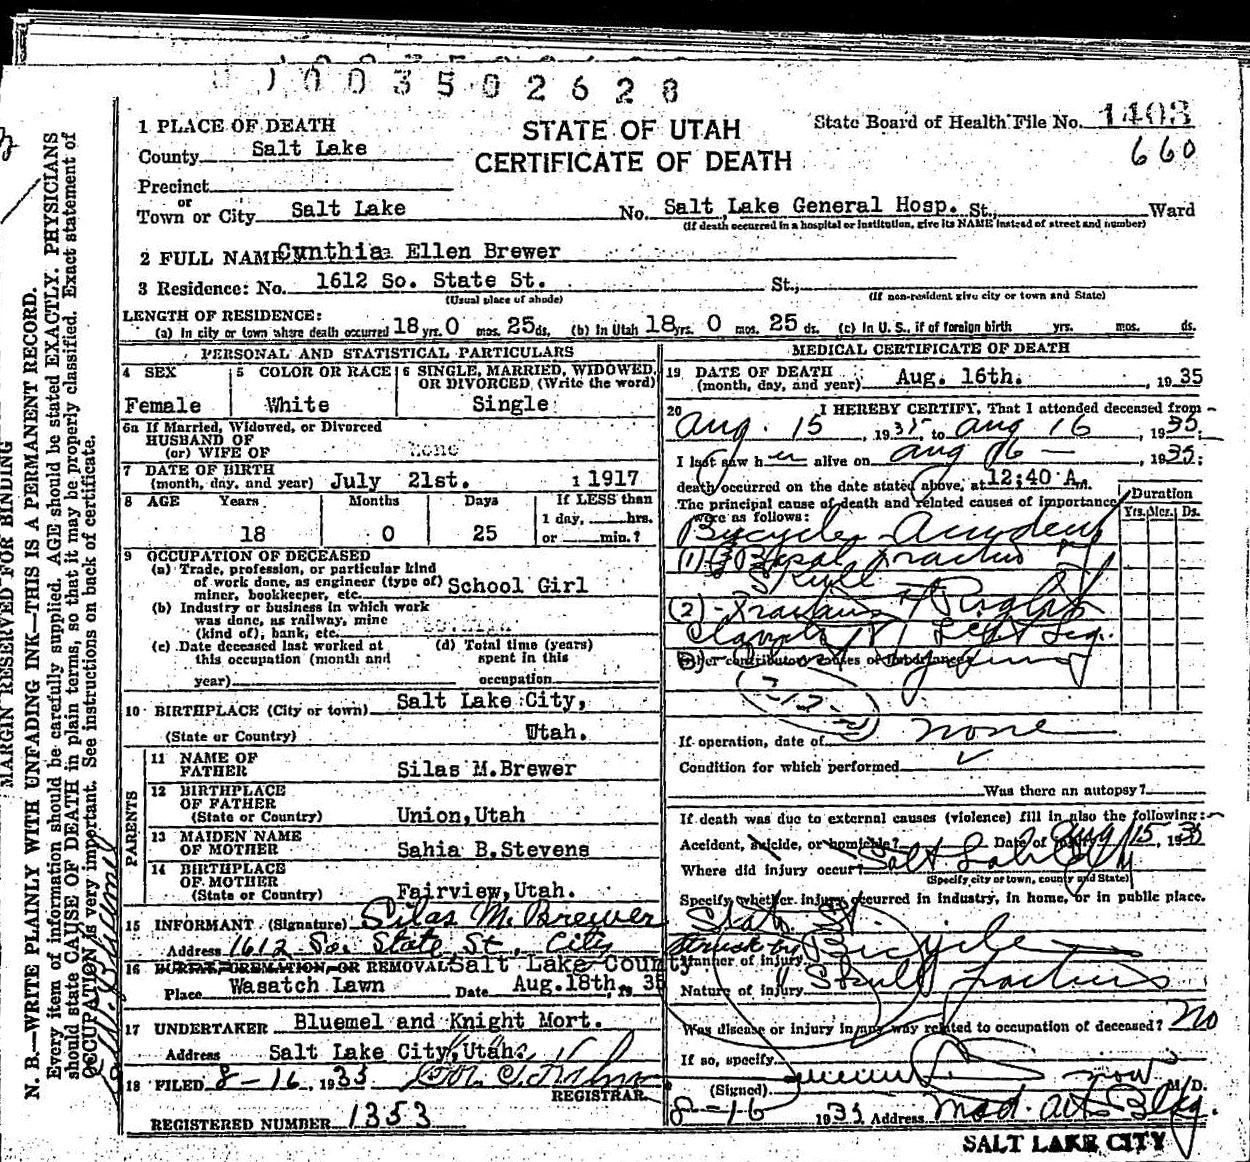 0 0 3 5 0 2 6 2 8
1 PLACE OF DEATH
STATE OF UTAH
State Board of Health File No. 1403
County Salt Lake
CERTIFICATE OF DEATH
660
Precinct
or
Town or City Salt Lake No. Salt Lake General Hosp. St., Ward
(If death occurred in a hospital or institution, give its NAME instead of street and number)
2 FULL NAME Cynthia Ellen Brewer
3 Residence: No. 1612 So. State St. St.,
(Usual place of abode) (If non-resident give city or town and State)
LENGTH OF RESIDENCE:
(a) In city or town where death occurred 18 yrs. 0 mos. 25 ds. (b) In Utah 18 yrs. 0 mos. 25 ds. (c) In U. S., if of foreign birth yrs. mos. ds.
PERSONAL AND STATISTICAL PARTICULARS
4 SEX
Female
5 COLOR OR RACE
White
6 SINGLE, MARRIED, WIDOWED, OR DIVORCED (Write the word)
Single
6a If Married, Widowed, or Divorced
HUSBAND OF
(or) WIFE OF None
7 DATE OF BIRTH
(month, day, and year) July 21st. 1917
8 AGE Years Months Days If LESS than
1 day, hrs.
18 0 25 or min.?
9 OCCUPATION OF DECEASED
(a) Trade, profession, or particular kind
of work done, as engineer (type of)
miner, bookkeeper, etc. School Girl
(b) Industry or business in which work
was done, as railway, mine
(kind of), bank, etc.
(c) Date deceased last worked at
this occupation (month and
year)
(d) Total time (years)
spent in this
occupation
10 BIRTHPLACE (City or town) Salt Lake City,
(State or Country) Utah.
PARENTS
11 NAME OF
FATHER Silas M.Brewer
12 BIRTHPLACE
OF FATHER
(State or Country) Union,Utah
13 MAIDEN NAME
OF MOTHER Sahia B.Stevens
14 BIRTHPLACE
OF MOTHER
(State or Country) Fairview,Utah.
15 INFORMANT (Signature) Silas M. Brewer
Address 1612 So. State St, City
16 BURIAL, CREMATION, OR REMOVAL Salt Lake County
Place Wasatch Lawn Date Aug.18th, 19 35
17 UNDERTAKER Bluemel and Knight Mort.
Address Salt Lake City,Utah.
18 FILED 8-16, 1935
REGISTRAR
REGISTERED NUMBER 1353
MEDICAL CERTIFICATE OF DEATH
19 DATE OF DEATH
(month, day, and year) Aug. 16th. , 1935
20 I HEREBY CERTIFY, That I attended deceased from
Aug. 15, 1935, to Aug 16, 1935;
I last saw her alive on Aug 16, 1935;
death occurred on the date stated above, at 12:40 A.m.
The principal cause of death and related causes of importance
were as follows:
Duration
Yrs. Mos. Ds.
Bicycle Accident
(1) Basal Fracture of
Skull
(2) - Fracture of Right
Left Leg.
Other contributory causes of importance:
If operation, date of none
Condition for which performed
Was there an autopsy?
If death was due to external causes (violence) fill in also the following:
Accident, suicide, or homicide? Date of injury Aug 15, 1935
Where did injury occur? Salt Lake City
(Specify city or town, county and State)
Specify whether injury occurred in industry, in home, or in public place.
State St
struck by
Manner of injury Bicycle
Nature of injury Skull fracture
Was disease or injury in any way related to occupation of deceased? No
If so, specify
(Signed) M. D.
8-16 1935 Address Med. Arts Bldg.
SALT LAKE CITY
MARGIN RESERVED FOR BINDING
N. B.—WRITE PLAINLY WITH UNFADING INK—THIS IS A PERMANENT RECORD.
Every item of information should be carefully supplied. AGE should be stated EXACTLY. PHYSICIANS
should state CAUSE OF DEATH in plain terms, so that it may be properly classified. Exact statement of
OCCUPATION is very important. See instructions on back of certificate.